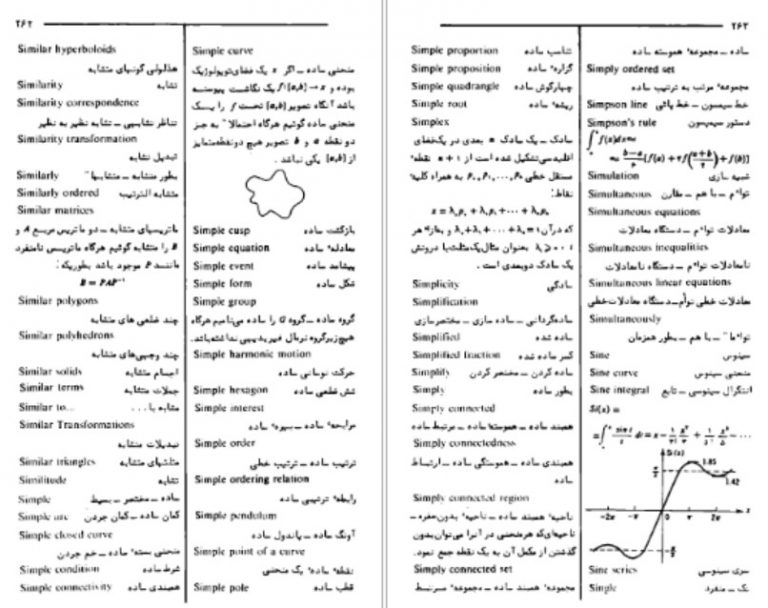 ۲۶۲
Similar hyperboloids
هذلولی گونهای متشابه
Similarity تشابه
Similarity correspondence
تناظر تشابهی ــ تشابه نظیر به نظیر
Similarity transformation
تبدیل تشابه
Similarly بطور متشابه ــ متشابها"
Similarly ordered متشابه الترتیب
Similar matrices
ماتریسهای متشابه ــ دو ماتریس مربع A و
B را متشابه گوئیم هرگاه ماتریس نامنفرد
مانند P موجود باشد بطوریکه:
B = PAP⁻¹
Similar polygons
چند ضلعی های متشابه
Similar polyhedrons
چند وجهی‌های متشابه
Similar solids اجسام متشابه
Similar terms جملات متشابه
Similar to... متشابه با ...
Similar Transformations
تبدیلات متشابه
Similar triangles مثلثهای متشابه
Similitude تشابه
Simple ساده ــ مختصر ــ بسیط
Simple arc کمان ساده ــ کمان جردن
Simple closed curve
منحنی بسته ساده ــ خم جردن
Simple condition شرط ساده
Simple connectivity همبندی ساده
Simple curve
منحنی ساده ــ اگر x یک فضای توپولوژیک
بوده و f:[a,b] → x یک نگاشت پیوسته
باشد آنگاه تصویر [a,b] تحت f را یک
منحنی ساده گوئیم هرگاه احتمالا" به جز
دو نقطه a و b تصویر هیچ دو نقطه متمایز
از [a,b] یکی نباشد.
Simple cusp بازگشت ساده
Simple equation معادله ساده
Simple event پیشامد ساده
Simple form شکل ساده
Simple group
گروه ساده ــ گروه G را ساده می‌نامیم هرگاه
هیچ زیرگروه نرمال غیربدیهی نداشته باشد.
Simple harmonic motion
حرکت نوسانی ساده
Simple hexagon شش ضلعی ساده
Simple interest
مرابحه ساده ــ بهره ساده
Simple order
ترتیب ساده ــ ترتیب خطی
Simple ordering relation
رابطه ترتیبی ساده
Simple pendulum
آونگ ساده ــ پاندول ساده
Simple point of a curve
نقطه ساده یک منحنی
Simple pole قطب ساده
۲۶۳
Simple proportion تناسب ساده
Simple proposition گزاره ساده
Simple quadrangle چهارگوش ساده
Simple root ریشه ساده
Simplex
سادک ــ یک سادک n بعدی در یک فضای
اقلیدسی تشکیل شده است از n + ۱ نقطه
مستقل خطی p₀, p₁, ..., pₙ به همراه کلیه
نقاط:
x = λ₀p₀ + λ₁p₁ + ··· + λₙpₙ
که در آن λ₀ + λ₁ + ··· + λₙ = ۱ و بازاء هر
i، λᵢ ≥ ۰ بعنوان مثال یک مثلث با درونش
یک سادک دوبعدی است.
Simplicity سادگی
Simplification
ساده‌گردانی ــ ساده سازی ــ مختصرسازی
Simplified ساده شده
Simplified fraction کسر ساده شده
Simplify ساده کردن ــ مختصر کردن
Simply بطور ساده
Simply connected
همبند ساده ــ همبسته ساده ــ مرتبط ساده
Simply connectedness
همبندی ساده ــ همبستگی ساده ــ ارتباط
ساده
Simply connected region
ناحیه همبند ساده ــ ناحیه بدون حفره ــ
ناحیه‌ای که هر منحنی در آنرا می‌توان بدون
گذشتن از مکمل آن به یک نقطه جمع نمود.
Simply connected set
مجموعه همبند ساده ــ مجموعه مرتبط
ساده ــ مجموعه همبسته ساده
Simply ordered set
مجموعه مرتب به ترتیب ساده
Simpson line خط سیمسون ــ خط پائی
Simpson's rule دستور سیمپسون
∫ₐᵇ f(x)dx ≈
≈ (b−a)/۶ [f(a) + ۴f((a+b)/۲) + f(b)]
Simulation شبیه سازی
Simultaneous توا"م ــ با هم ــ مقارن
Simultaneous equations
معادلات توا"م ــ دستگاه معادلات
Simultaneous inequalities
نامعادلات توا"م ــ دستگاه نامعادلات
Simultaneous linear equations
معادلات خطی توأم ــ دستگاه معادلات خطی
Simultaneously
توا"ما" ــ با هم ــ بطور همزمان
Sine سینوس
Sine curve منحنی سینوس
Sine integral انتگرال سینوسی ــ تابع
Si(x) =
= ∫₀ˣ (sin t)/t dt = x − ...
Si(x)
1.85
1.42
π/2
−2π −π 0 π 2π x
−π/2
Sine series سری سینوسی
Single تک ــ منفرد